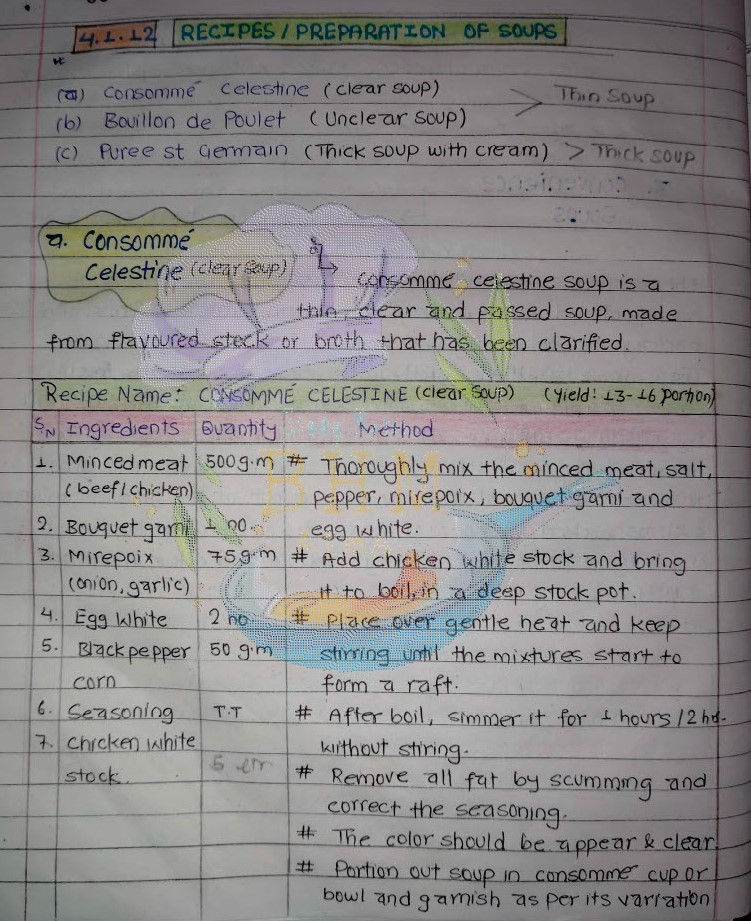 4.1.12 RECIPES / PREPARATION OF SOUPS
(a) Consommé Celestine (clear soup)
Thin Soup
(b) Bouillon de Poulet (Unclear soup)
(c) Puree st Germain (Thick soup with cream) > Thick soup
a. Consommé
Celestine (clear soup)
Consomme celestine soup is a
thin, clear and passed soup, made
from flavoured stock or broth that has been clarified.
Recipe Name: CONSOMMÉ CELESTINE (clear soup) (Yield: 13-16 portion)
SN Ingredients Quantity Method
1. Minced meat 500 g.m # Thoroughly mix the minced meat, salt,
(beef/chicken) pepper, mirepoix, bouquet garni and
2. Bouquet garni 1 no. egg white.
3. Mirepoix 75 g.m # Add chicken white stock and bring
(onion, garlic) it to boil, in a deep stock pot.
4. Egg white 2 no # Place over gentle heat and keep
5. Black pepper 50 g.m stirring until the mixtures start to
corn form a raft.
6. Seasoning T.T # After boil, simmer it for 1 hours / 2 hrs.
7. Chicken white without stiring.
stock. 5 # Remove all fat by scumming and
correct the seasoning.
# The color should be appear & clear.
# Portion out soup in consomme cup or
bowl and garnish as per its variation
BHM